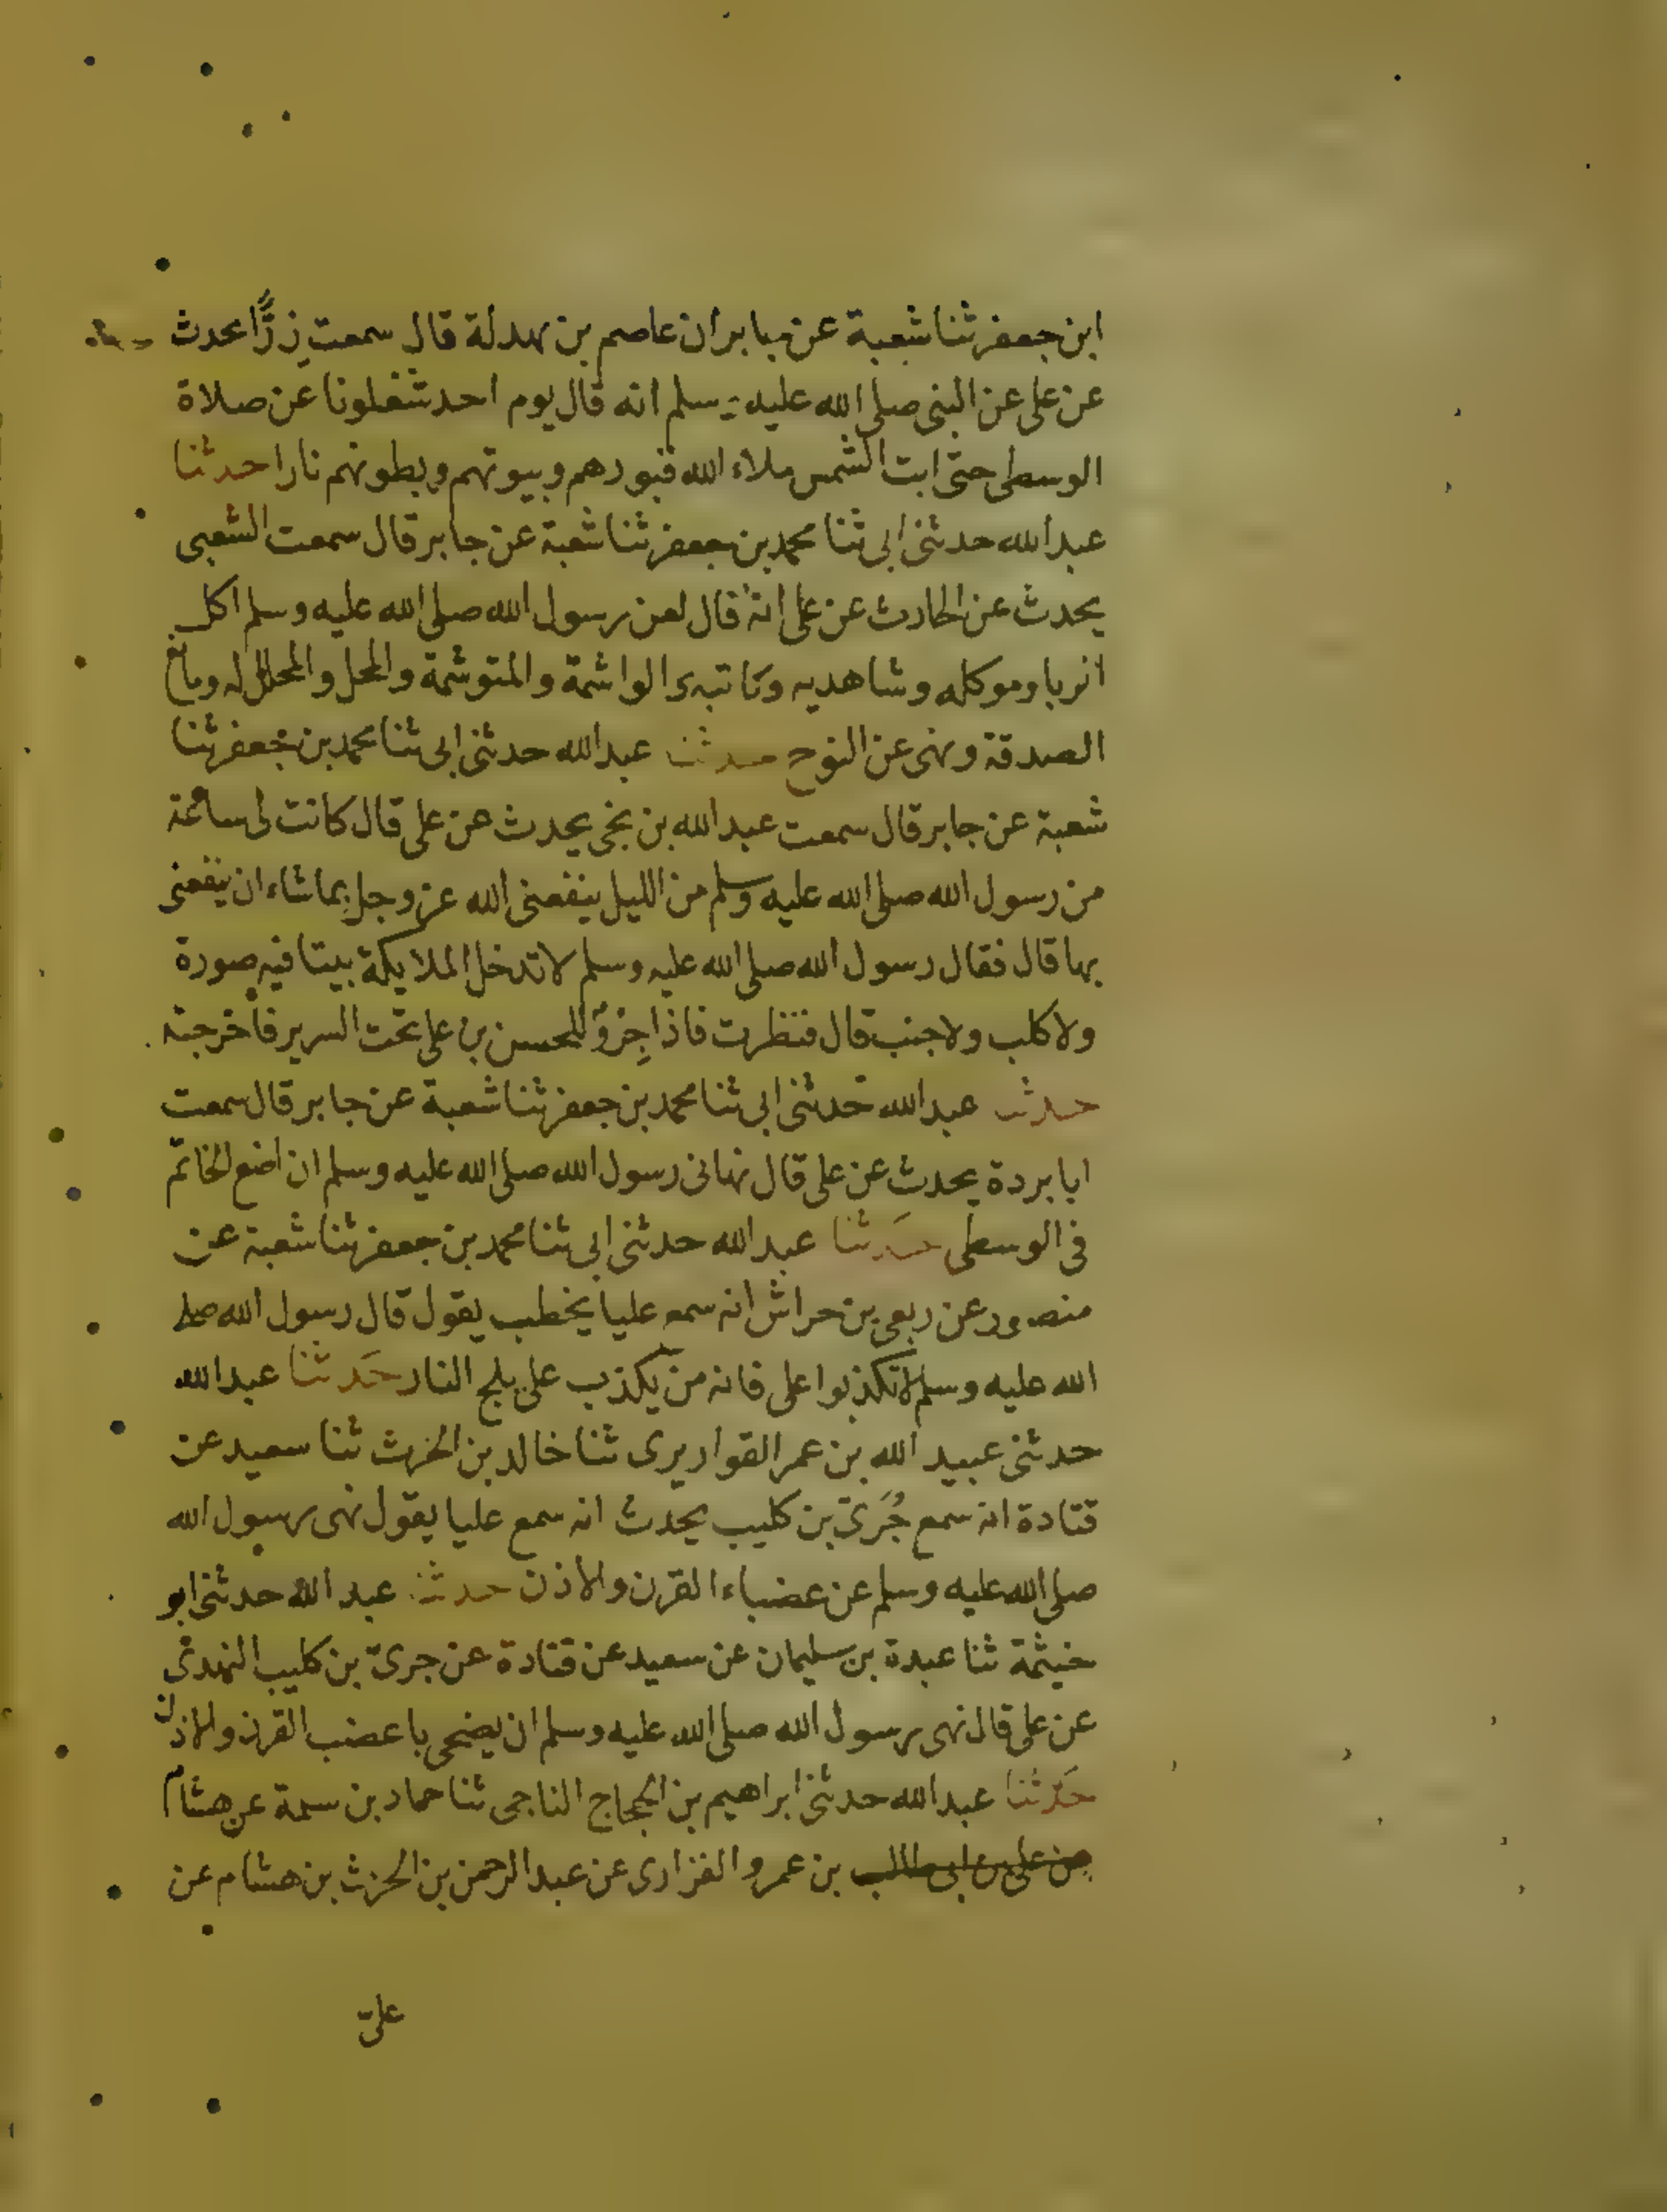 ابن جعفر ثنا شعبة عن جابر ان عاصم بن بهدلة قال سمعت زرًّا يحدث
عن على عن النبى صلى الله عليه وسلم انه قال يوم احد شغلونا عن صلاة
الوسطى حتى ابت الشمس ملاء الله قبورهم وبيوتهم وبطونهم نارا حدثنا
عبد الله حدثنى ابى ثنا محمد بن جعفر ثنا شعبة عن جابر قال سمعت الشعبى
يحدث عن الحارث عن على انه قال لعن رسول الله صلى الله عليه وسلم اكل
الربا وموكله وشاهديه وكاتبه والواشمة والمتوشمة والمحل والمحلل له ومانع
الصدقة ونهى عن النوح حدثنا عبد الله حدثنى ابى ثنا محمد بن جعفر ثنا
شعبة عن جابر قال سمعت عبد الله بن نجى يحدث عن على قال كانت لى ساعة
من رسول الله صلى الله عليه وسلم من الليل ينفعنى الله عز وجل بما شاء ان ينفعنى
بها قال فقال رسول الله صلى الله عليه وسلم لا تدخل الملايكة بيتا فيه صورة
ولا كلب ولا جنب قال فنظرت فاذا جِرْوٌ للحسن بن على تحت السرير فاخرجته
حدثنا عبد الله حدثنى ابى ثنا محمد بن جعفر ثنا شعبة عن جابر قال سمعت
ابا بردة يحدث عن على قال نهانى رسول الله صلى الله عليه وسلم ان اضع الخاتم
فى الوسطى حَدثنا عبد الله حدثنى ابى ثنا محمد بن جعفر ثنا شعبة عن
منصور عن ربعى بن حراش انه سمع عليا يخطب يقول قال رسول الله صلى
الله عليه وسلم لا تكذبوا على فانه من يكذب على يلج النار حَدثنا عبد الله
حدثنى عبيد الله بن عمر القواريرى ثنا خالد بن الحرث ثنا سعيد عن
قتادة انه سمع جُرَىّ بن كليب يحدث انه سمع عليا يقول نهى رسول الله
صلى الله عليه وسلم عن عضباء القرن والاذن حدثنا عبد الله حدثنى ابو
خيثمة ثنا عبدة بن سليمان عن سعيد عن قتادة عن جرىّ بن كليب النهدى
عن على قال نهى رسول الله صلى الله عليه وسلم ان يضحى باعضب القرن والاذن
حَدثنا عبد الله حدثنى ابراهيم بن الحجاج الناجى ثنا حماد بن سلمة عن هشام
عن على بن ابى طالب بن عمرو الفزارى عن عبد الرحمن بن الحرث بن هشام عن
علىّ